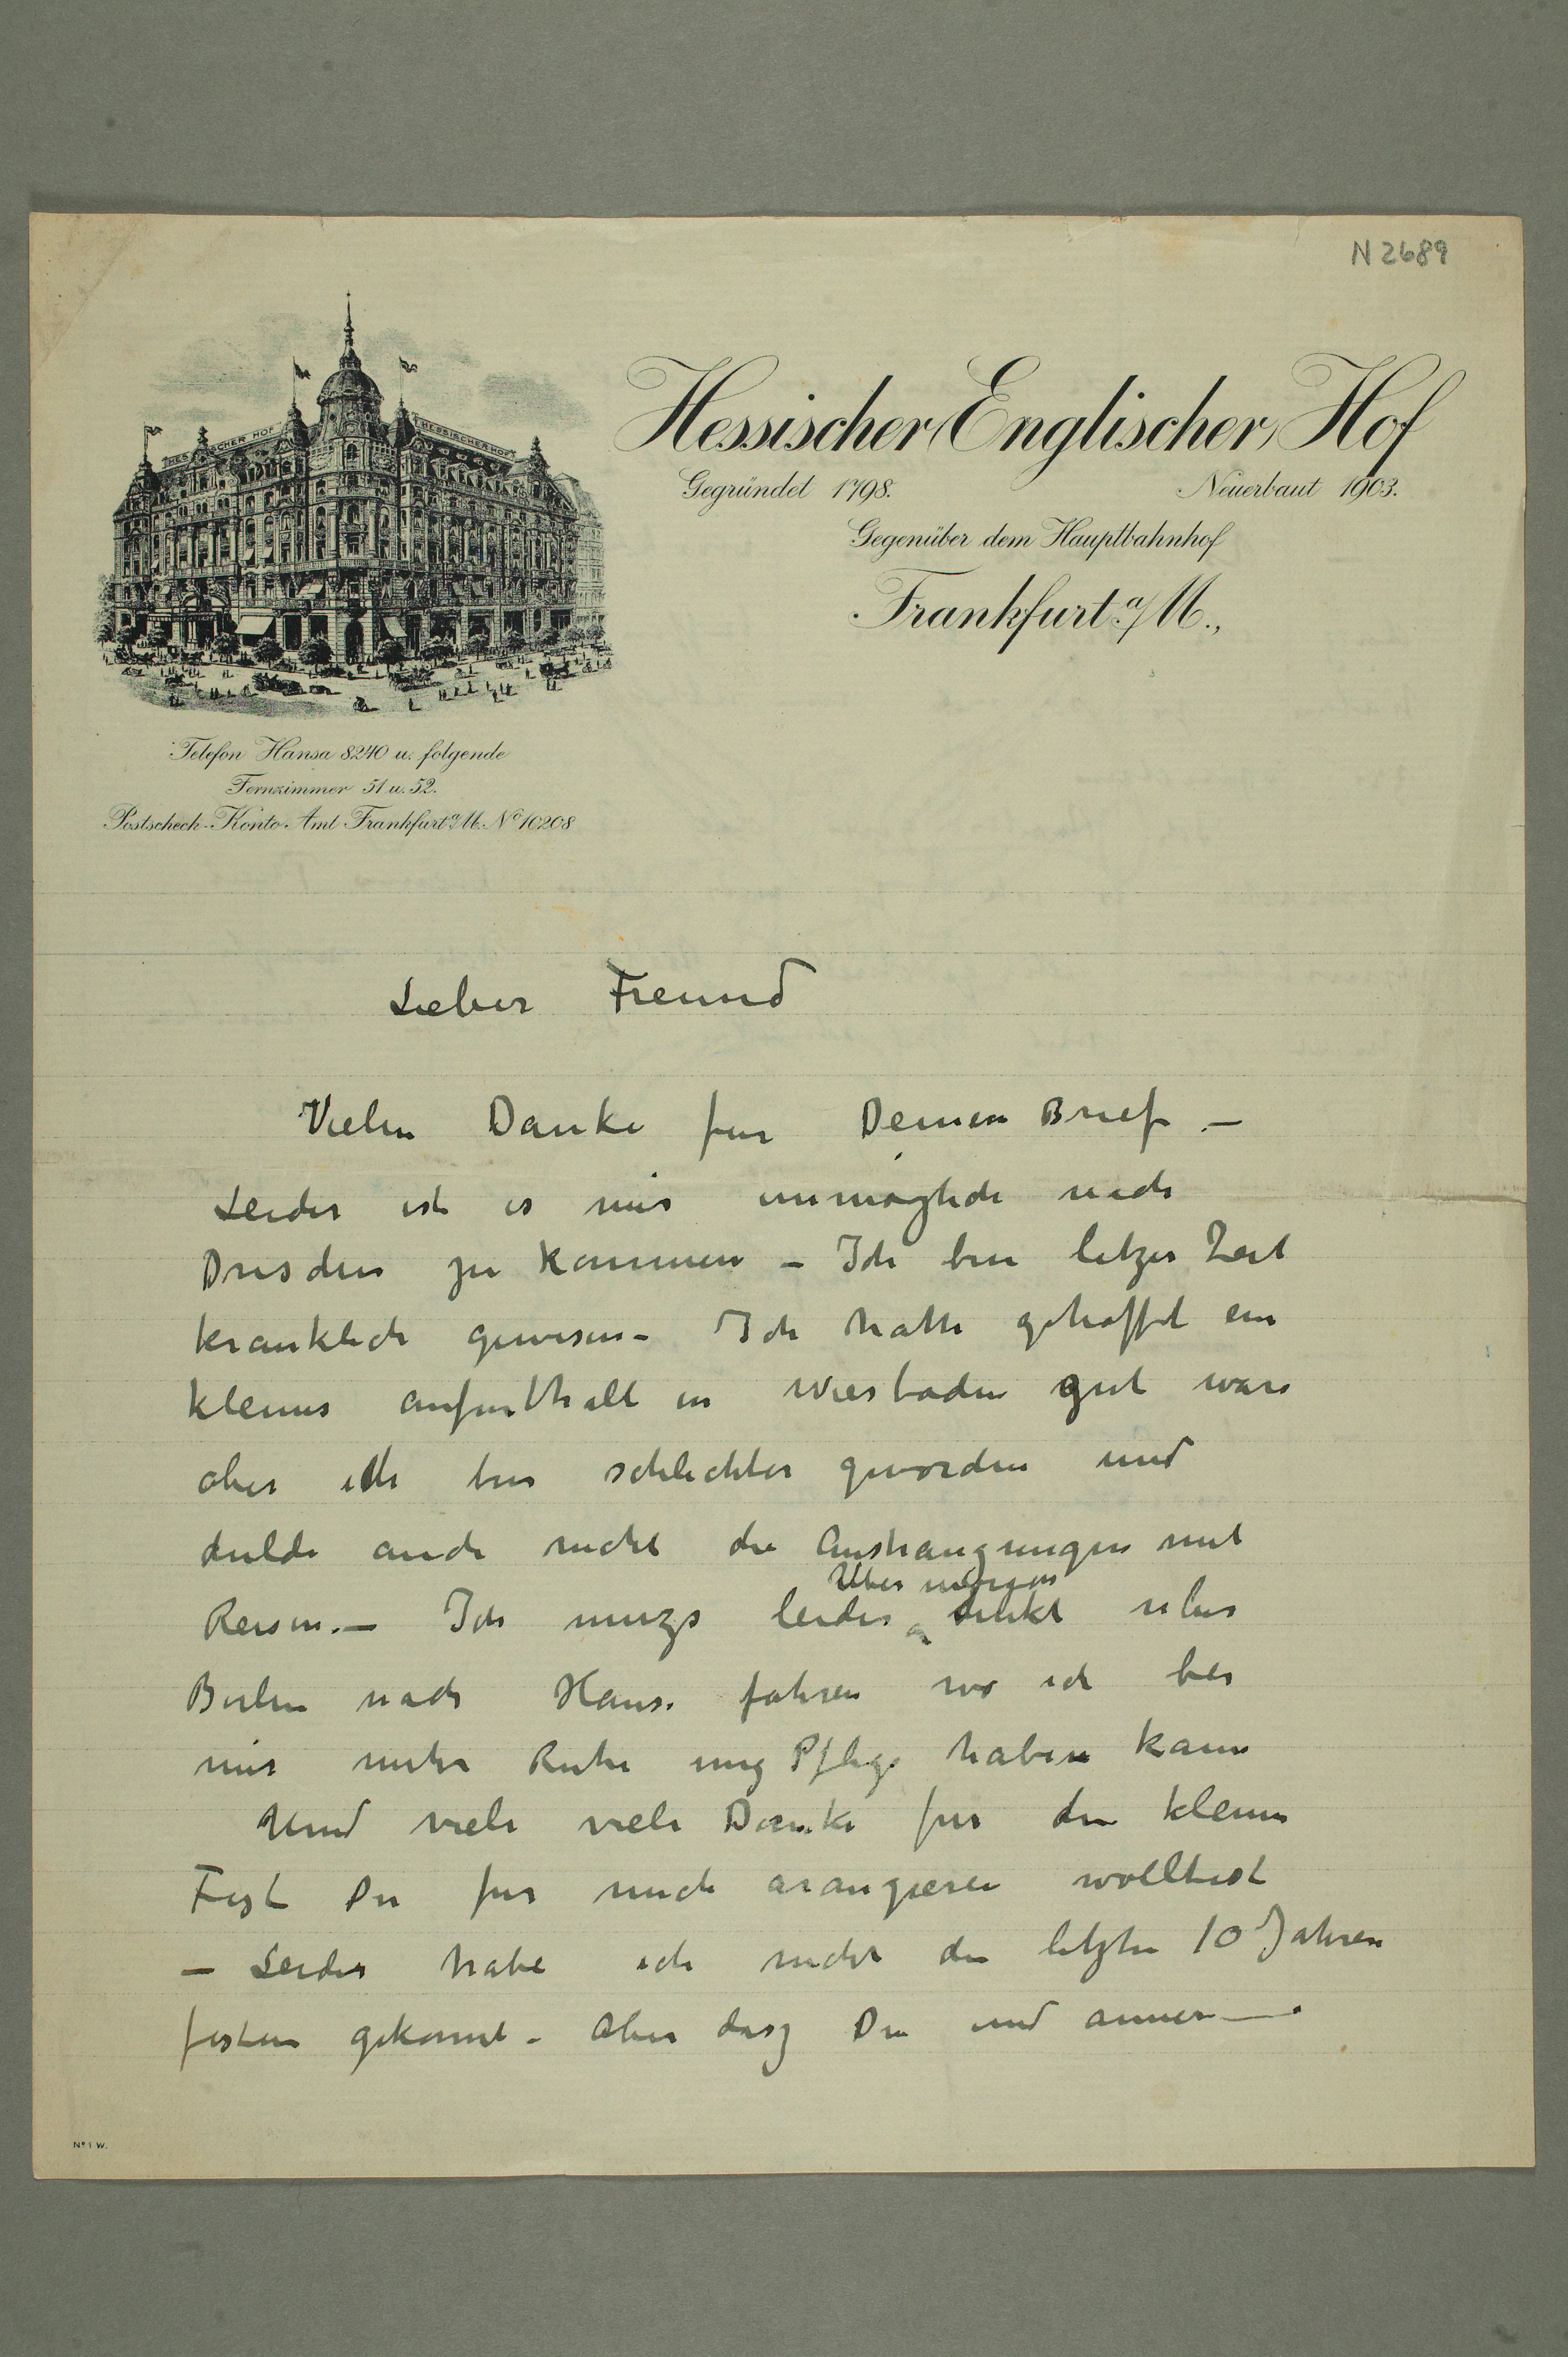 N 2689
HESSISCHER HOF
HESSISCHER HOF
Hessischer (Englischer) Hof
Gegründet 1798. Neuerbaut 1903.
Gegenüber dem Hauptbahnhof
Frankfurt a/M.,
Telefon Hansa 8240 u. folgende
Fernzimmer 51 u. 52.
Postscheck-Konto-Amt Frankfurt a/M. No 10208
Lieber Freund
Vielen Danke fur Deinen Brief –
Leider ist es mir unmöglich nach
Dresden zu kommen – Ich bin letzer Zeit
kranklich gewesen – Ich hatte gehofft ein
kleines aufenthalt in Wiesbaden gut ware
aber ich bin schlechter geworden und
dulde auch nicht die Anstrangungen mit
Ubermorgen
Reisen. – Ich muzs leider direkt uber
Berlin nach Hause fahren wo ich bei
mir mehr Ruhe ung Pflege haben kann
Und viele viele Danke fur den kleinen
Fest Du fur mich arangieren wolltest
– Leider habe ich nicht die letzten 10 Jahren
festen gekonnt – Aber dasz Du und annere
No 1 W.